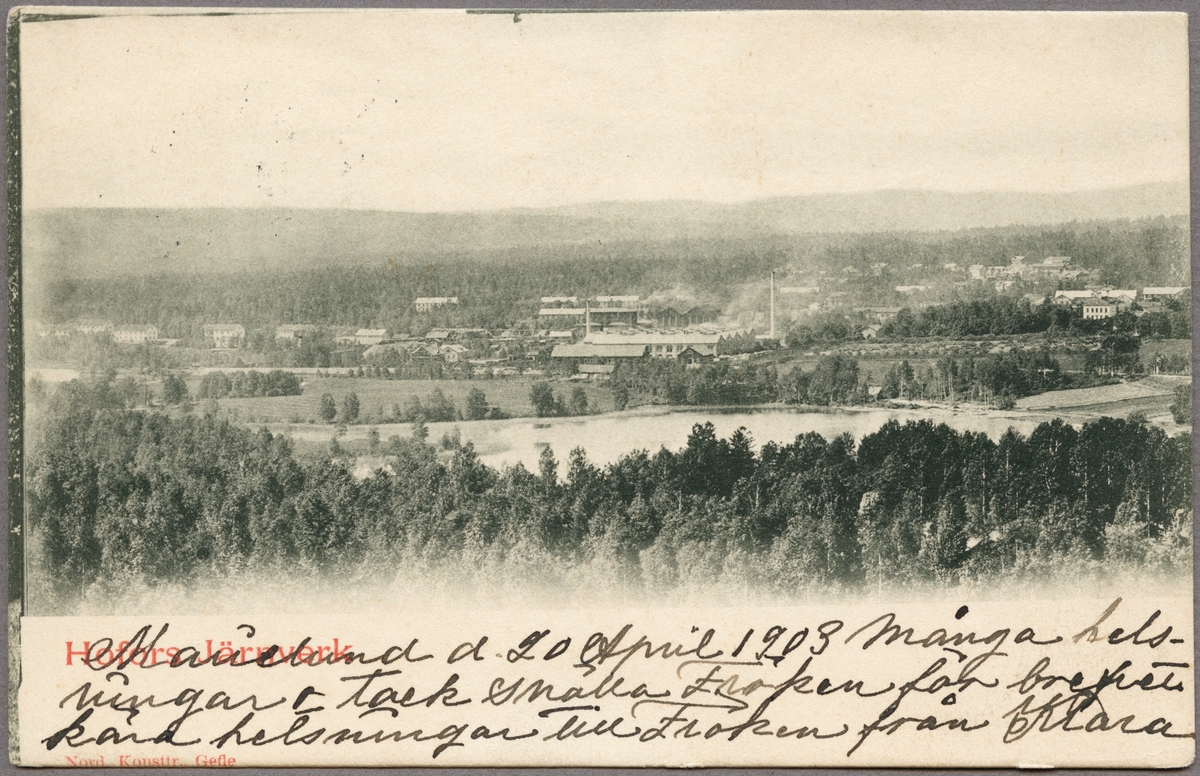 Hofors Järnverk
d. 20 April 1903 Många hels-
ningar & tack snälla Fröken för brefvet
kära helsningar till Fröken från Klara
Nord. Konsttr., Gefle